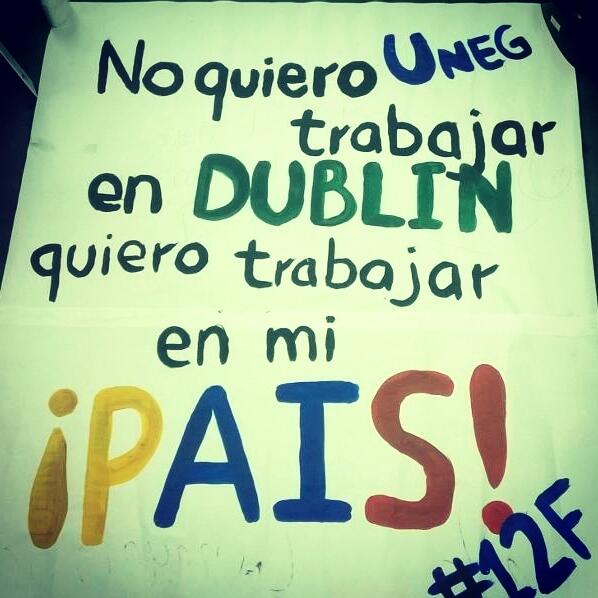 No quiero UNEG
trabajar
en DUBLIN
quiero trabajar
en mi
¡PAIS!
#12F